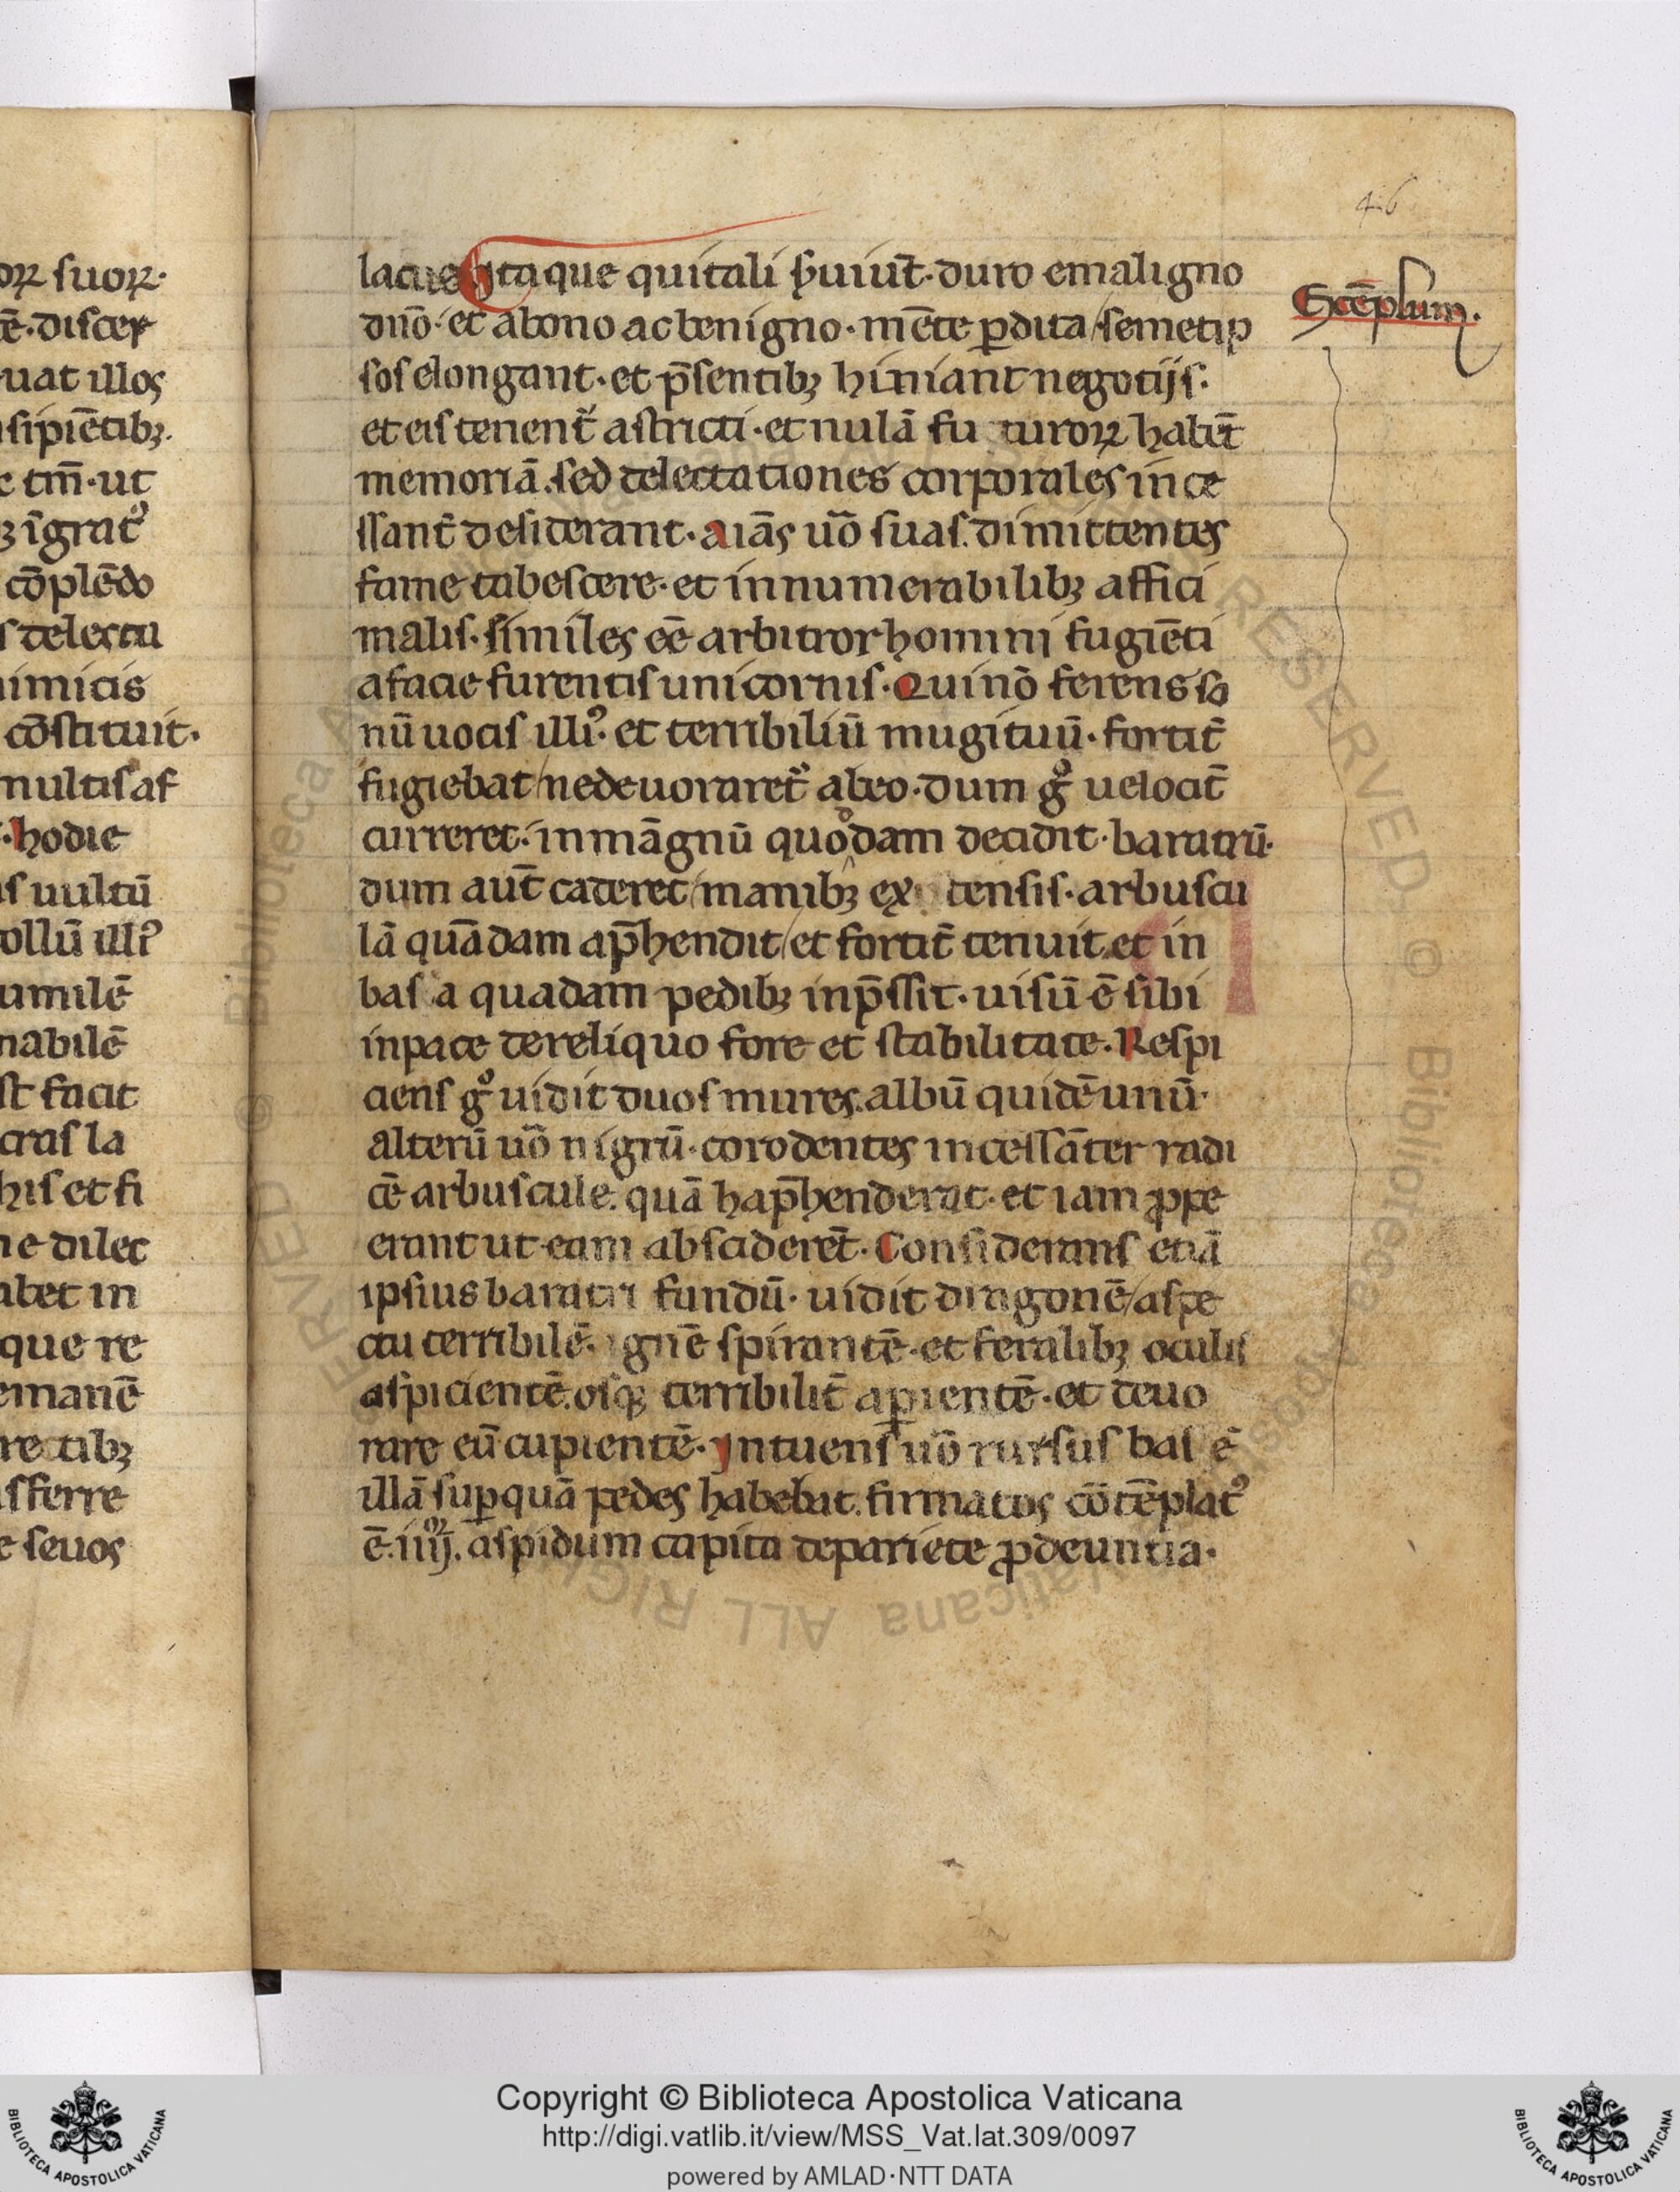 46
orꝝ suorꝝ·
ē·discer
uat illos
sipiētibꝫ·
c tm̄·ut
ꝫ īgrat᷒
cōplēdo
s delecta
imicis
cōstituit·
multis af
·hodie
is uultū
ollū illi᷒
umilē
nabilē
st facit
cras la
his et fi
ne dilec
abet in
que re
emanē
rectibꝫ
sferre
e seuos
Exēplum.
lacue Itaque qui tali ẏuiūt·duro emaligno
dn̄o·et abono ac benigno·mēte ꝑdita/semetip
sos elongant·et p̄sentibꝫ hiniant negotijs·
et eis tenent᷑ astricti·et nulā fu turoꝝ habēt
memoriā·sed delectationes corporales ince
ssant̄ desiderant·aiās uō suas·dimittentes
fame tabescere·et innumerabilibꝫ affici
malis·similes eē arbitror homini fugiēti
afacie furentis unicornis·Qui nō ferens so
nū uocis illi᷒·et terribiliū mugituū·fortit̄
fugiebat/ne deuoraret᷑ abeo·dum gͦ uelocit̄
curreret·in māgnū quodam decidit·baratrū·
dum aut̄ caderet/manibꝫ ex tensis·arbuscu
lā quādam ap̄hendit/et fortit̄ tenuit·et in
bas a quadam pedibꝫ inp̄ssit·uisū ē sibi
inpace dereliquo fore et stabilitate·Respi
ciens gͦ uidit duos mures·albū quidē unū·
alterū uō nigrū·corodentes incessāter radi
cē arbuscule·quā hap̄henderat·et iam ꝓpe
erant ut eam absciderēt·Considerans etiā
ipsius baratri fundū·uidit dragonē/aspe
ctu terribilē·ignē spirantē·et feralibꝫ oculis
aspicientē·osqꝫ terribilit̄ aꝑientē·et deuo
rare eū cupientē·Intuens uō rursus bas ē
illā suꝑ quā pedes habebat·firmatos cōtēplat᷒
ē·iiijᵒʳ·aspidum capita depariete ꝓdeuntia·
Copyright © Biblioteca Apostolica Vaticana
http://digi.vatlib.it/view/MSS_Vat.lat.309/0097
powered by AMLAD·NTT DATA
BIBLIOTECA APOSTOLICA VATICANA
BIBLIOTECA APOSTOLICA VATICANA